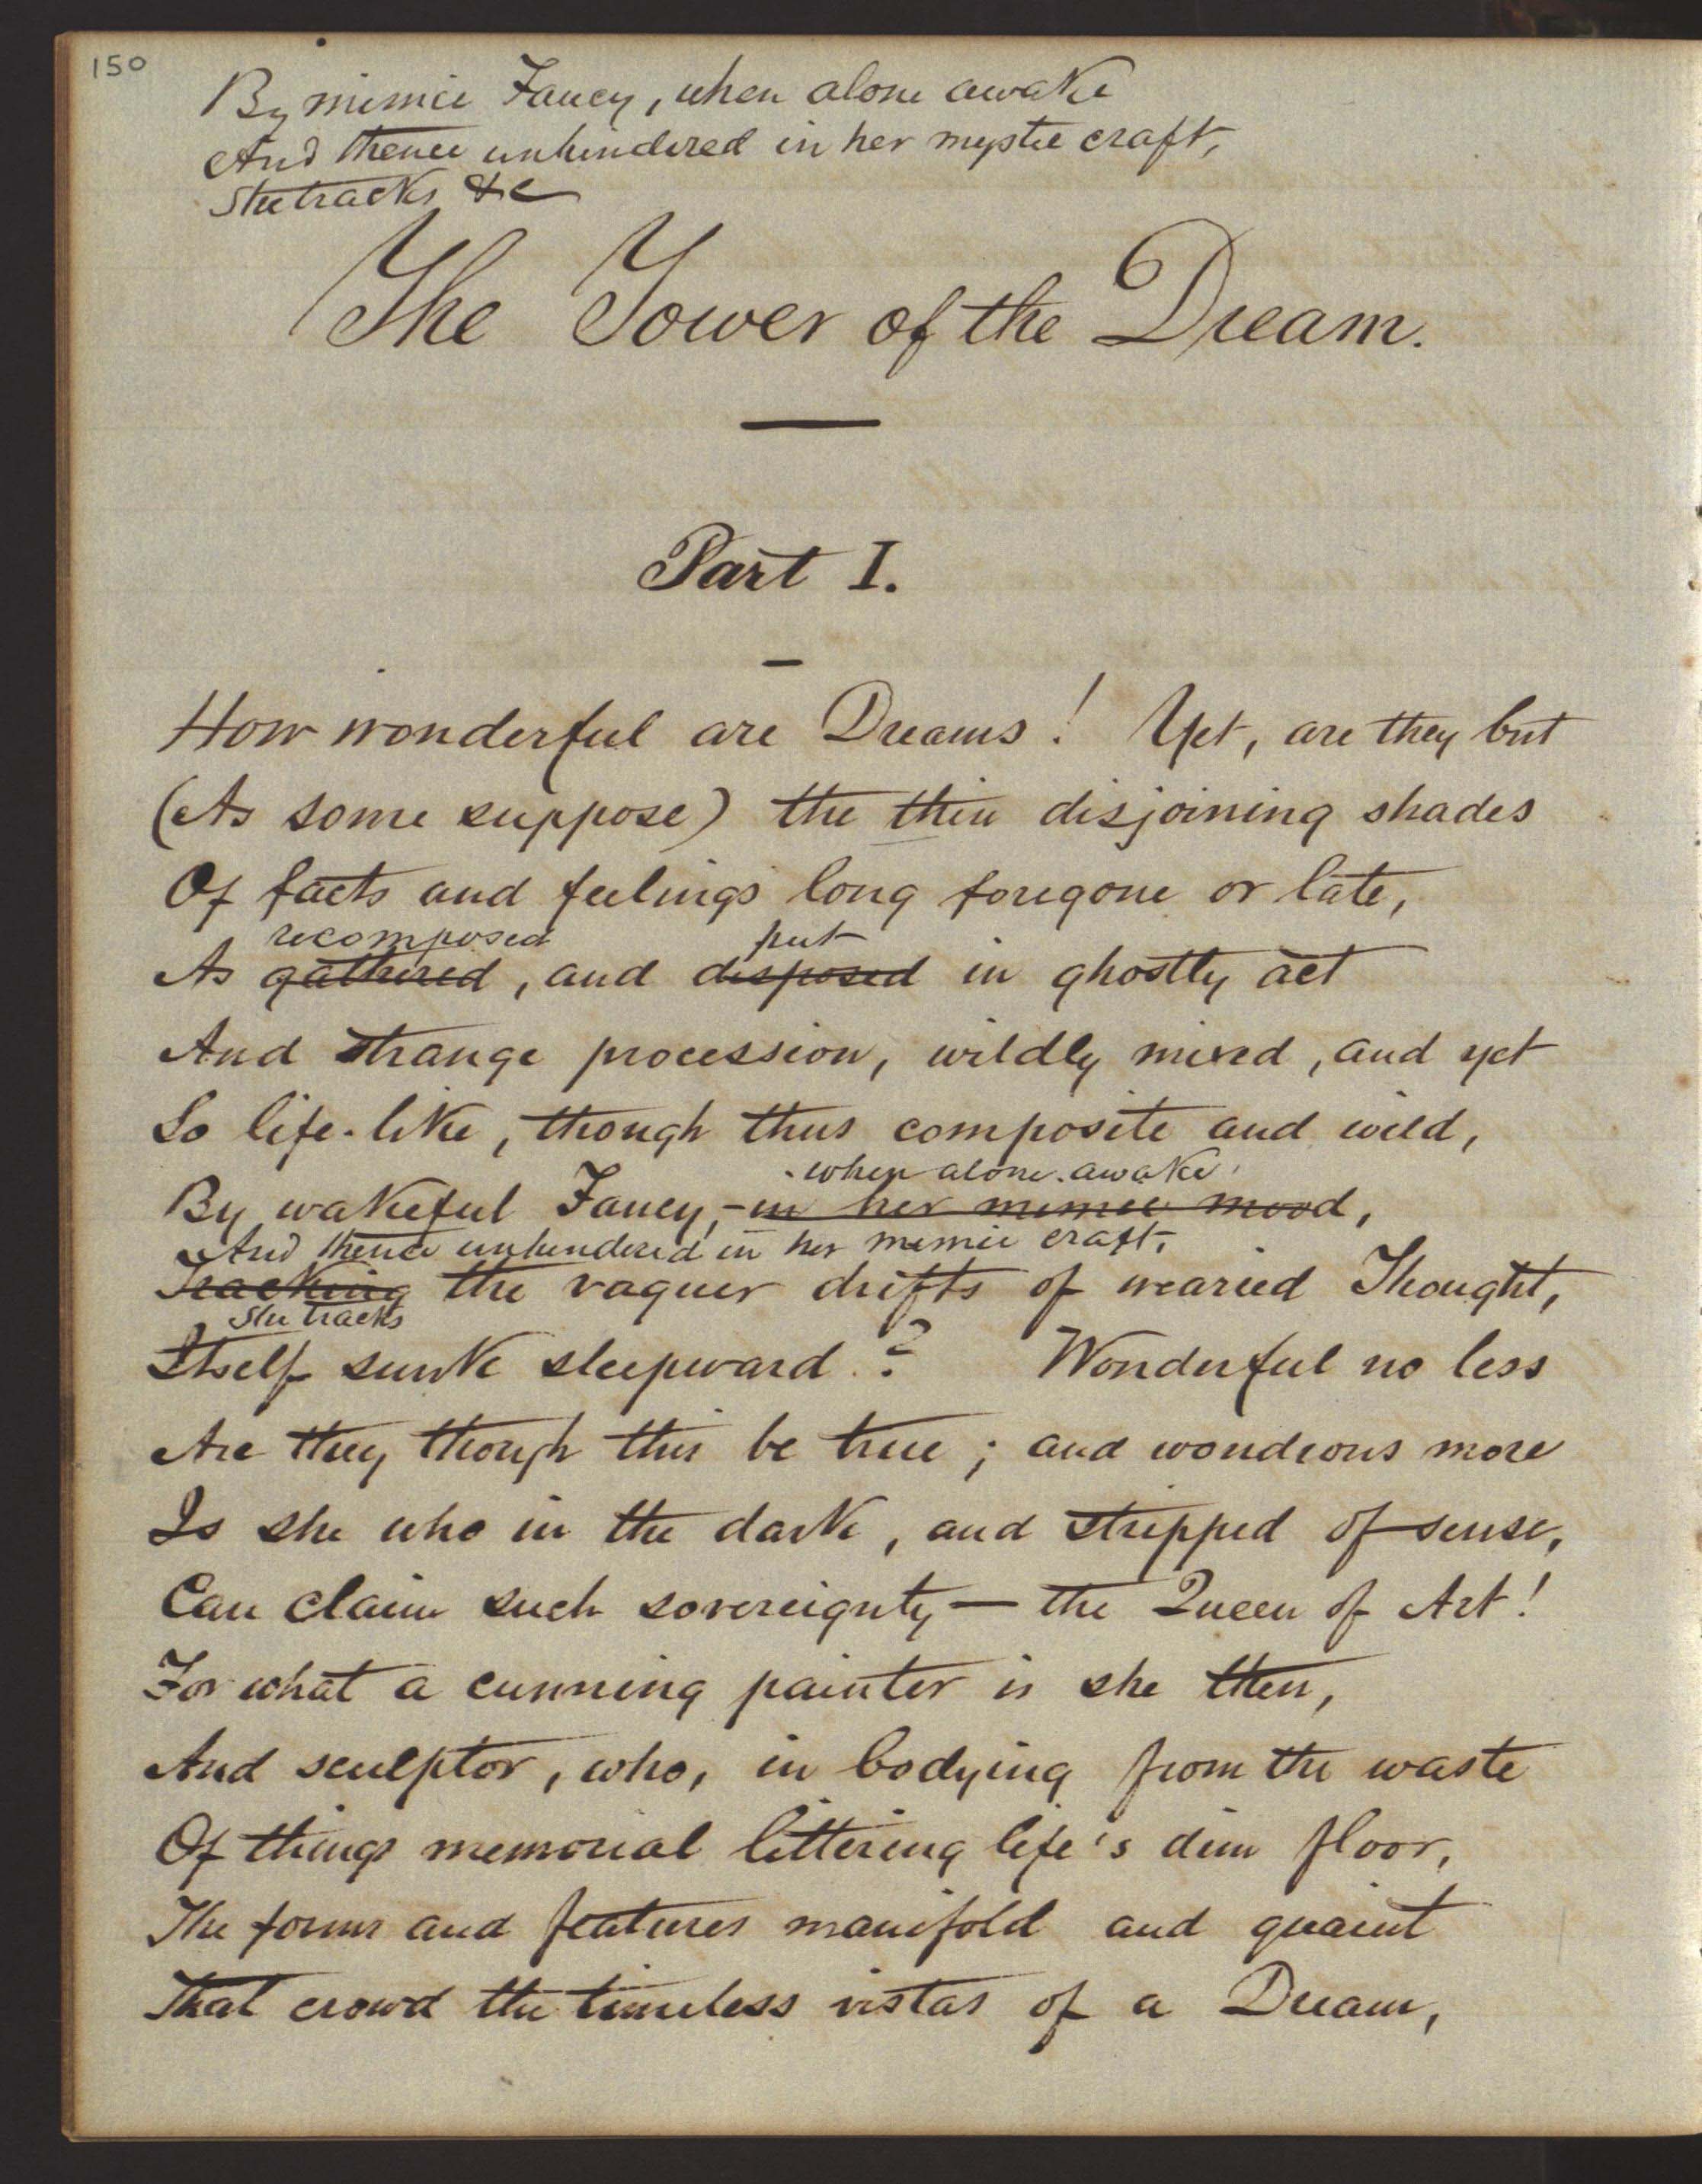 150
By mimic Fancy, when alone awake
And thence unhindered in her mystic craft,
She tracks &c
The Tower of the Dream.
Part I.
How wonderful are Dreams! Yet, are they but
(As some suppose) the thin disjoining shades
Of facts and feelings long foregone or late,
recomposed put
As gathered, and disposed in ghostly act
And strange procession, wildly mixed, and yet
So life-like, though thus composite and wild,
when alone awake
By wakeful Fancy,-in her mimic mood,
And thence unhindered in her mimic craft,
Tracking the vaguer drifts of wearied Thought,
She tracks
Itself sunk sleepward? Wonderful no less
Are they though this be true; and wondrous more
Is she who in the dark, and stripped of sense,
Can claim such sovereignty — the Queen of Art!
For what a cunning painter is she then,
And sculptor, who, in bodying from the waste
Of things memorial littering life's dim floor,
The forms and features manifold and quaint
That crowd the timeless vistas of a Dream,